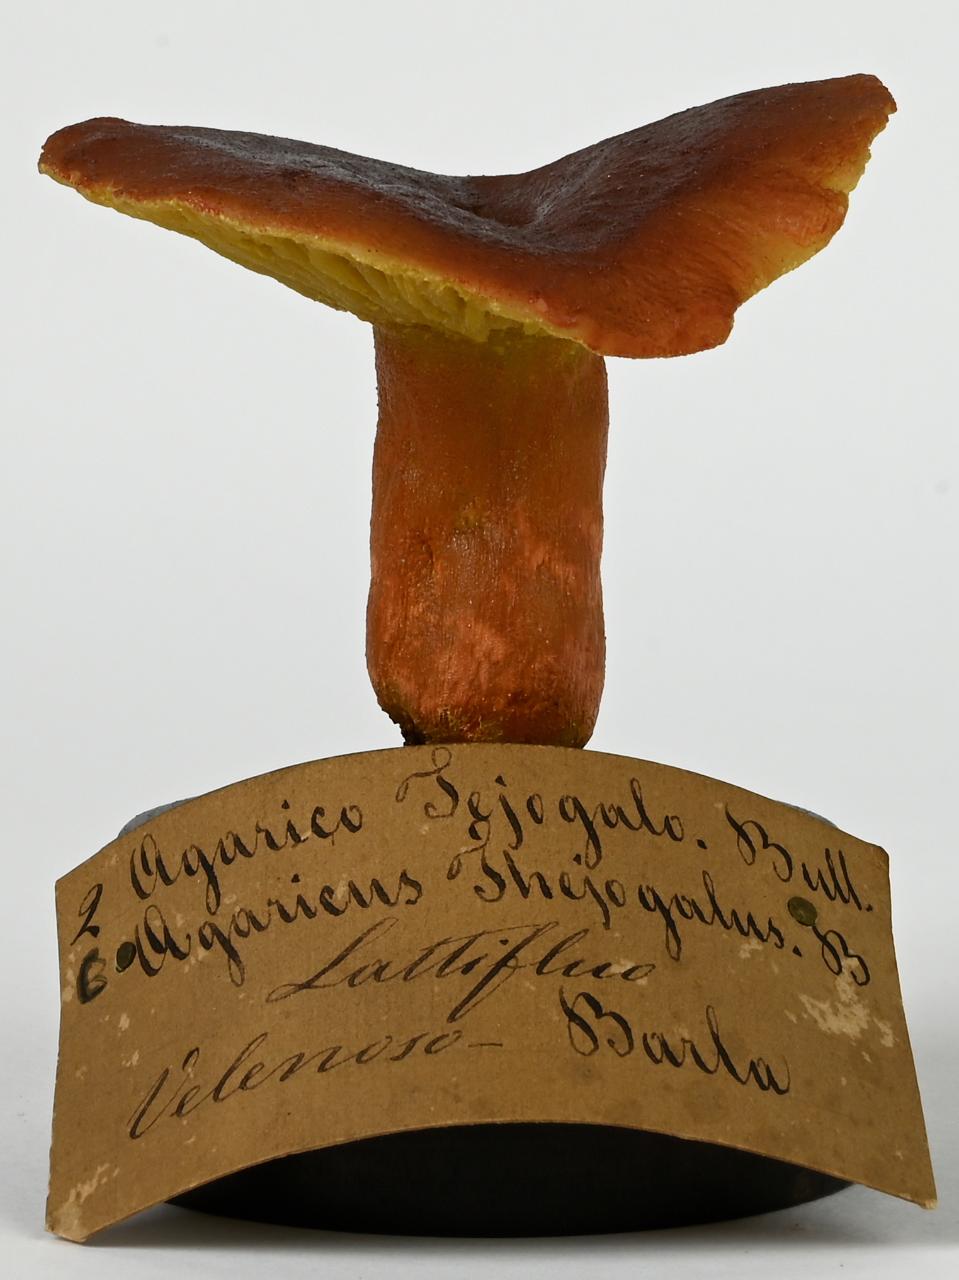 2 Agarico Tejogalo. Bull.
6 Agaricus Thejogalus. B
Lattifluo
Velenoso - Barla